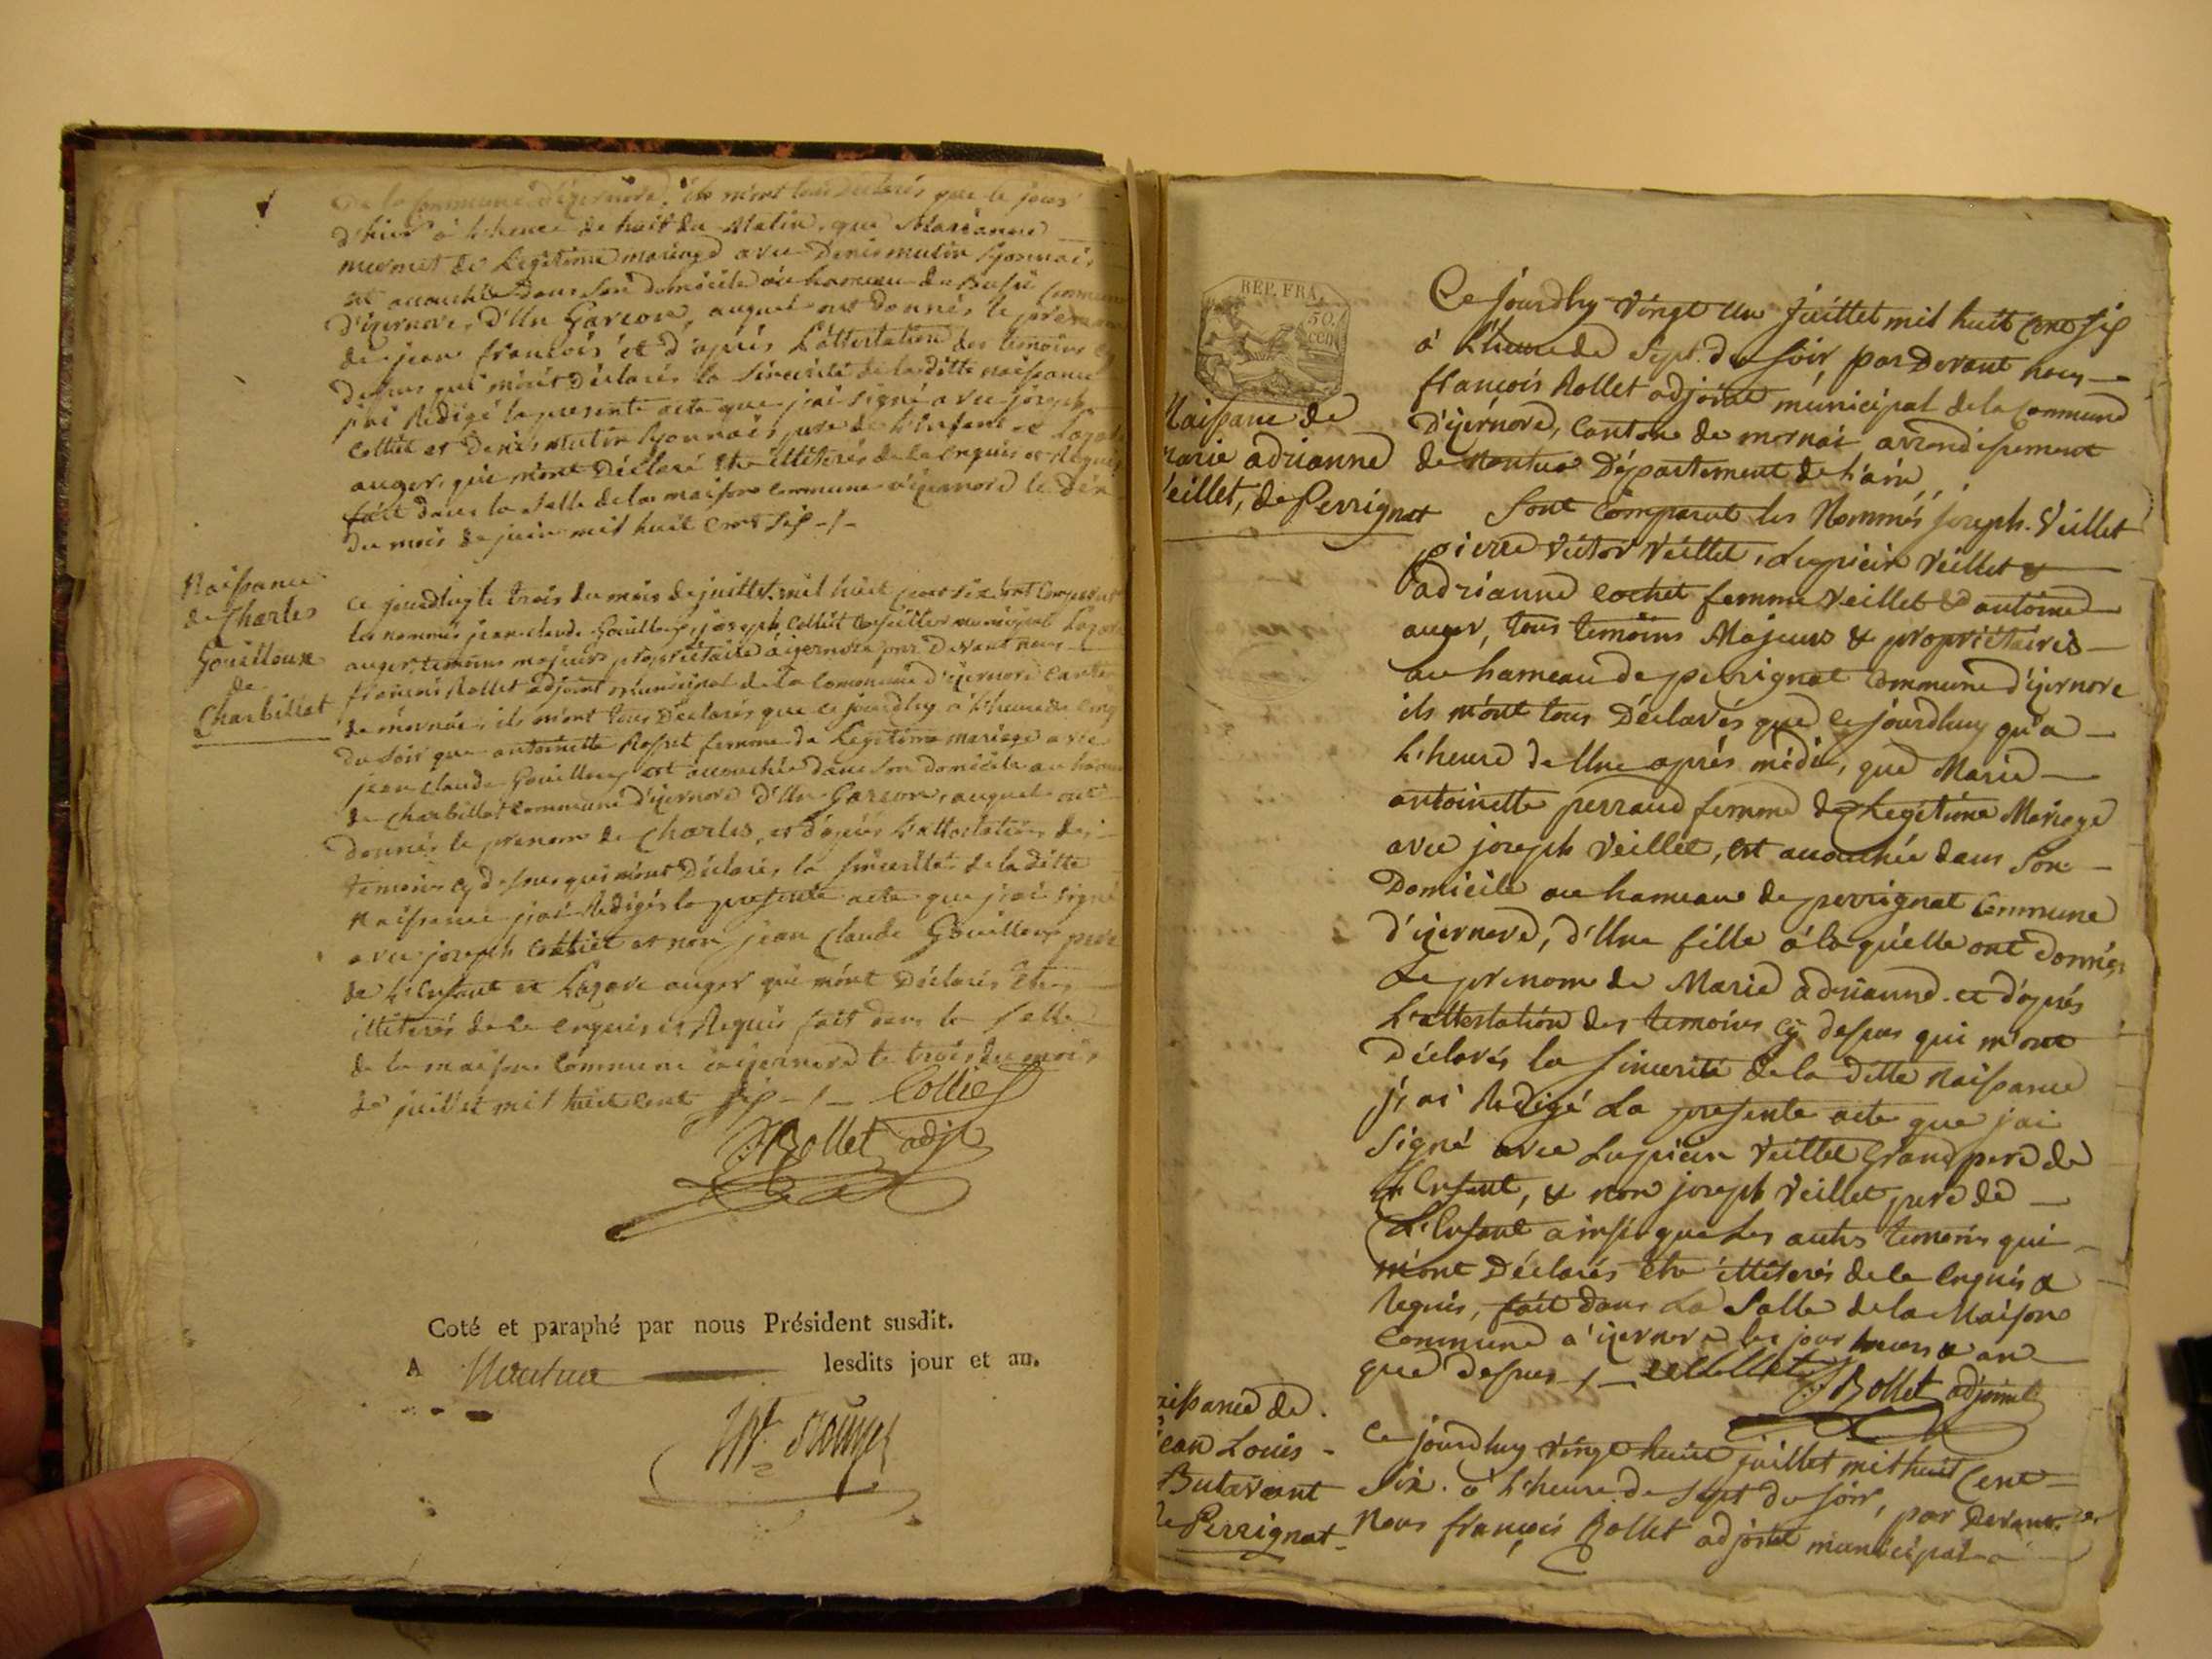 de la Commune d'izernore, ils m'ont tous déclarés que le jour
d'hier à l'heure de huit du Matin, que Marianne
mermet de Legitime mariage avec Denis mutin lyonnais
est accouchée dans son domicile au hameau du Commune
d'izernore, d'Un Garcon, auquel ont donnés le prenom
de jean francois et d'après L'attestation des temoins cy
dessus qui m'ont déclarés la sincerité de laditte naissance
j'ai Redigé la presente acte que j'ai signé avec joseph
Colliet et Denis mutin lyonnais pere de L'Enfant et Lazare
auger, qui m'ont Déclaré etre illiterés de ce enquis et Requis
fait dans la salle de la maison Commune d'izernore le dix
du mois de juin mil huit cent six -/-
Naissance
de Charles
Gouilloux
de
Charbillat
ce jourdhuy le trois du mois de juillet mil huit cent six sont comparut
les nommés jean claude Gouilloux, joseph Colliet conseiller municipal Lazare
auger, temoins majeurs propriétaire à izernore par Devant nous
francois Rollet adjoint municipal de la Commune d'izernore Canton
de mornai, ils m'ont tous Déclarés que ce jourdhuy à l'heure de cinq
du soir que antoinette Rosset femme de Legitime mariage avec
jean claude Gouilloux est accouchée dans son domicile au hameau
de Charbillat commune d'izernore d'Un Garcon, auquel ont
donnés le prenom de Charles, et d'après L'attestation des
temoins cy dessus qui m'ont Déclarés la sincerité de la ditte
Naissance j'ai Redigés la presente acte que j'ai signé
avec joseph Colliet et non jean Claude Gouilloux pere
de L'Enfant et Lazare auger qui m'ont Déclarés Etre
illiterés de ce enquis et Requis fait dans la salle
de la maison Commune d'izernore le trois du mois
de juillet mil huit cent six -/- Colliet
Rollet adjt
Coté et paraphé par nous Président susdit.
A Nantua lesdits jour et an.
REP. FRA.
50.
cen
Naissance de
marie adrianne
Veillet, de Perrignat
Ce jourdhuy Vingt un juillet mil huit Cent six
à L'heure de sept du soir, par Devant nous
francois Rollet adjoint municipal de la Commune
D'izernore, Canton de mornai arrondissement
de Nantua Département de l'ain
Sont Comparut les Nommés joseph Veillet
pierre Victor Veillet, Lupicin Veillet &
adrianne Cochet femme Veillet & antoine
auger, tous temoins Majeurs & propriétaires
au hameau de perrignat Commune d'izernore
ils m'ont tous Déclarés que ce jourdhuy qu'a
L'heure d'Une après midi, que Marie
antoinette perraud femme de Legitime Mariage
avec joseph Veillet, est accouchée dans Son
Domicile au hameau de perrignat Commune
d'izernore, d'Une fille à laquelle ont donnés
Le prenom de Marie adrianne et d'après
L'attestation des temoins cy dessus qui m'ont
Déclarés la sincerité de la ditte Naissance
j'ai Redigé La presente acte que j'ai
Signé avec Lupicin Veillet Grand pere de
L'Enfant, & non joseph Veillet pere de
L'Enfant ainsi que Les autres temoins qui
m'ont Déclarés etre illiterés de ce Enquis &
Requis, fait dans La Salle de la Maison
Commune d'izernore les jour mois & an
que dessus -/- Rollet adjoint
Naissance de
jean Louis
Butavant
de Perrignat
Ce jourdhuy Vingt huit juillet mil huit Cent
Six. à L'heure de Sept du soir, par Devant
Nous françois Rollet adjoint municipal